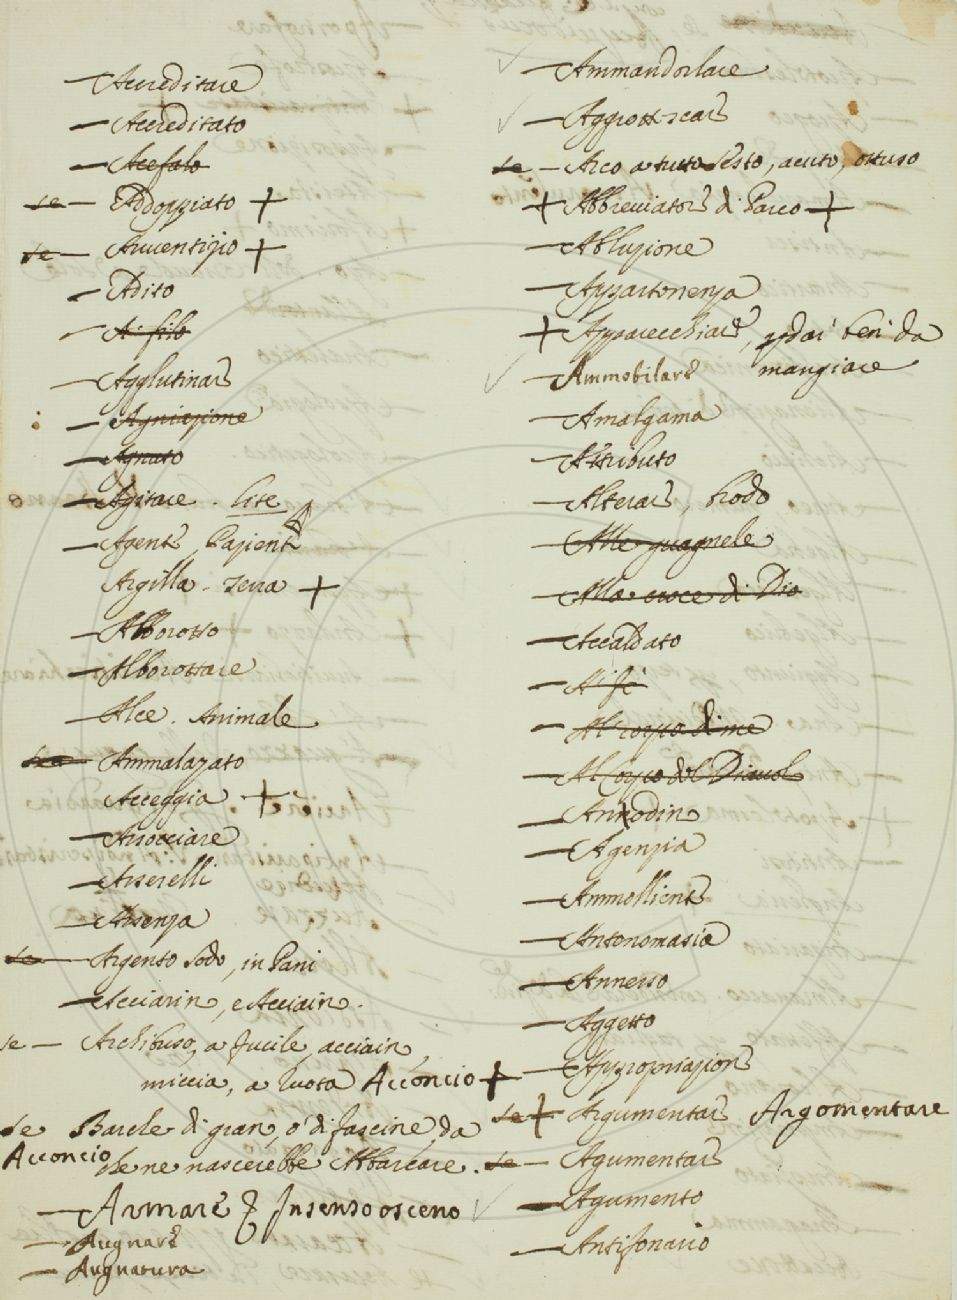 — Accreditare
— Accreditato
— Acefalo
se — Addoppiato +
se — Avventizio +
— Adito
— A filo
— Agglutinare
— Agniazione
— Agnato
— Agitare . lite
— Agente, Paziente
Argilla . Terra +
— Abborotto
— Alborottare
— Alce . Animale
se — Ammalazato
Acceggia +
— Arrocciare
— Arserelli
— Absenza
se — Argento sodo, in Pani
— Acciarin, e Acciain .
se — Archibuso, a fucile, acciain,
miccia, a ruota Acconcio +
se Barcle di gran, o' di fascine, da
Acconcio che ne nascerebbe Abbarcare .
— Armare & In senso osceno
— Augnare
— Augnatura
— Ammandorlare
— Aggrotticare
se — Arco a tutto sesto, acuto, ottuso
+ Abbreviatore di Parco +
— Abluzione
— Appartenenza
+ Apparecchiare, per dar ben da
mangiare
— Ammobilare
— Amalgama
— Attributo
— Alterare, brodo
— Alle guagnele
— Alla croce di Dio
— Accaldato
— A fè
— Al corpo di me
— Al Corpo del Diavol
— Annodin
— Agenzia
— Ammolliente
— Antonomasia
— Annesso
— Aggetto
— Appropriazione
se + Argumentare Argomentare
se — Agumentare
— Agumento
— Antifonario